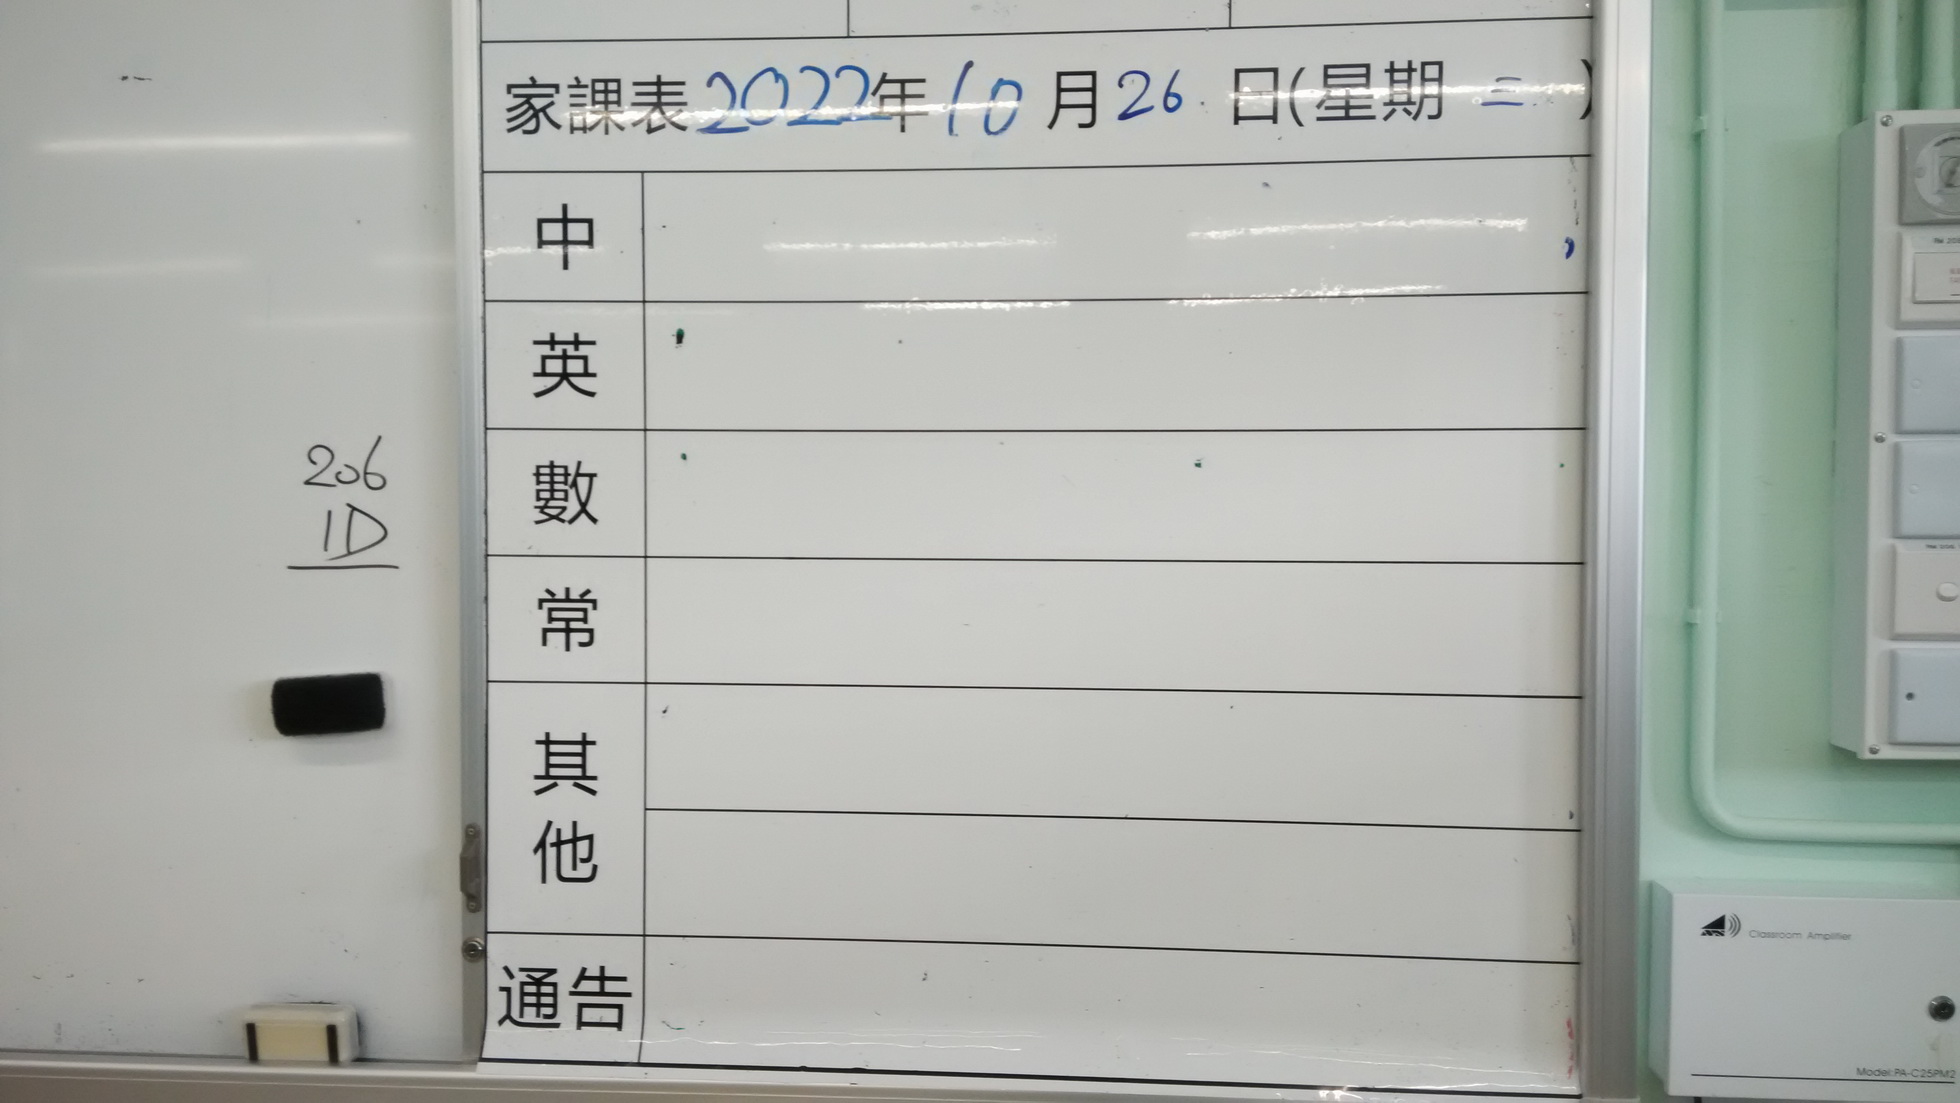 家課表2022年10月26日(星期三)
中
英
數
常
其
他
通告
206
1D
Classroom Amplifier
Model:PA-C25PM2